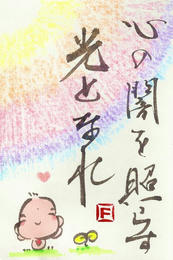 心の闇を照らす
光となれ